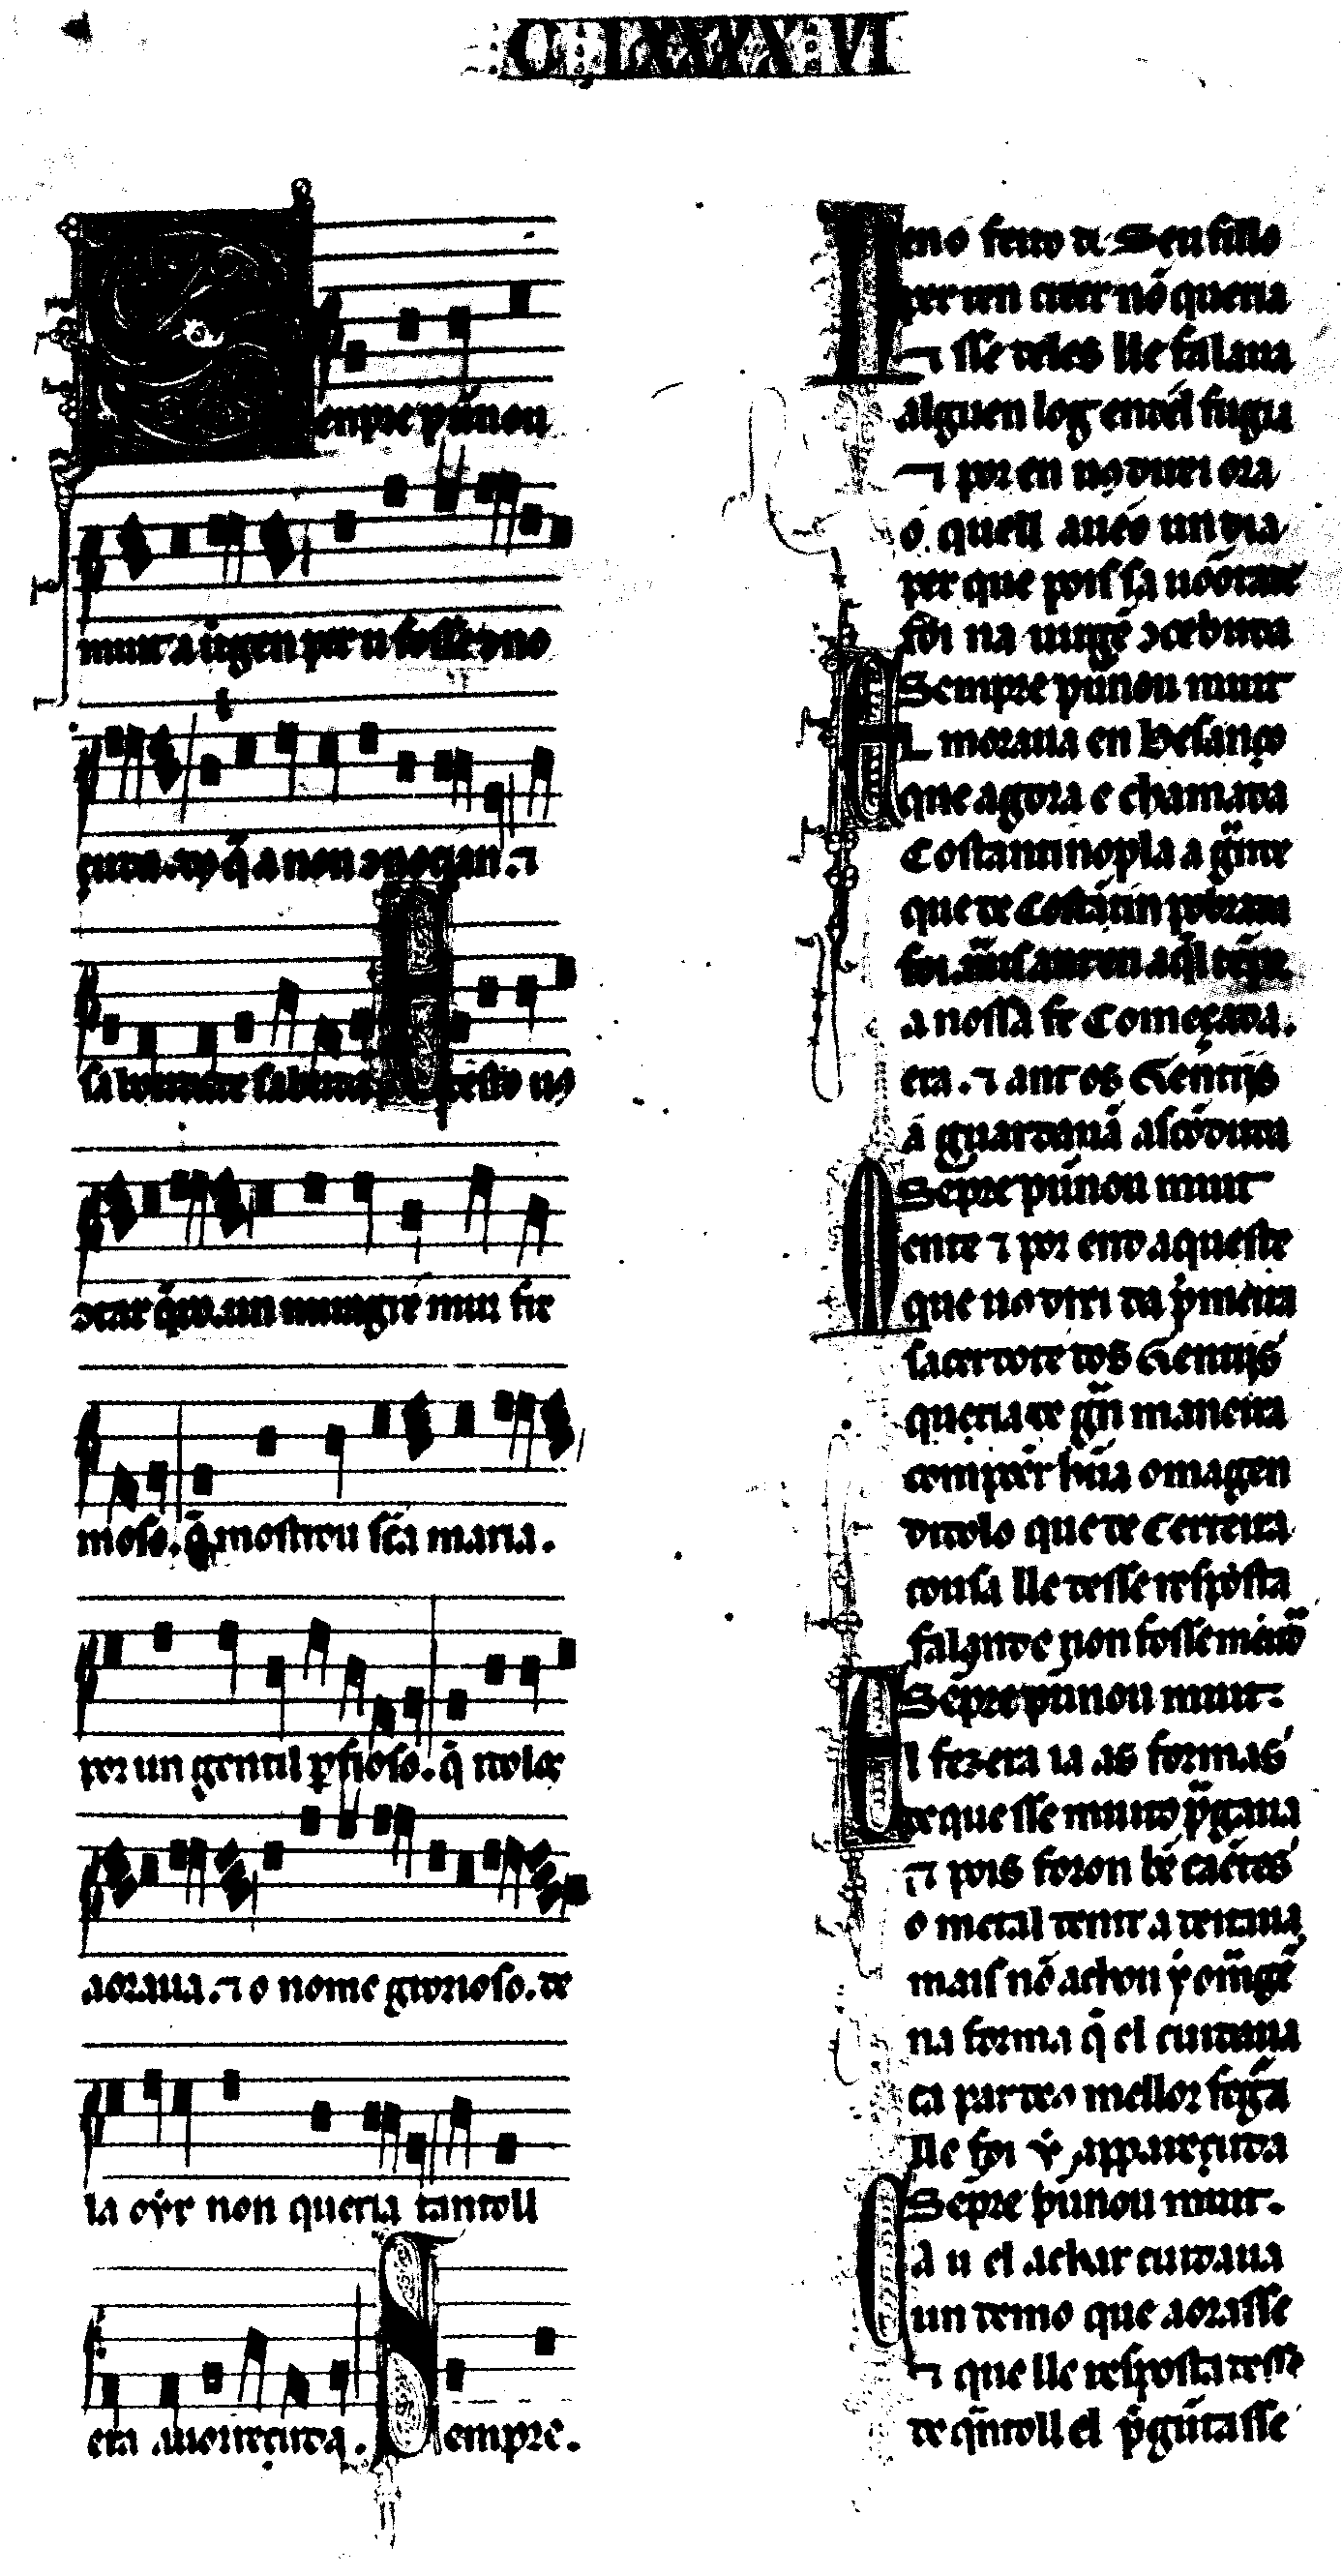 O LXXXX VI
Senpre punnou
muit a uirgen per u fosse cono
çuda. dos q̄ a non conoçian. ⁊
sa bondade sabuda. E desto uos
contar q̃ro. un miragre mui fre
moso. q̄ mostrou sc̄a maria.
por un gentil ꝑfioso. q̄ ydolos
aoraua. ⁊ o nome grorioso. de
la oyr non queria tantoll
era auorreçuda. Sempre.
eno feito de Seu fillo
per ren creer nō queria
⁊ sse deles lle falaua
alguen log entēl fugia
⁊ por en uos direi ora
o quell aueo un dia
per que pois sa uoontade
foi na uirgē conuertuda
Sempre punnou muit
El moraua en Besanço
que agora e chamada
Costantinopla a grande
que de Costātin pobrada
foi. mais ant en aq̄l tēpo
a nossa fe Começada.
era. ⁊ ant os Gentiis
a guardauā ascōduda
Sēpre punnou muit
Onde ⁊ por endo aqueste
que uos dixi da p̓meira
sacerdote dos Gentiis
queria de gn̄ maneira
compoēr hūa omagen
didolo que de Certeira
cousa lle desse resposta
falando e non fosse muda
Sēpre punnou muit.
El fezera ia as formas
de que sse muito pagaua
⁊ pois foron bē caēdes
o metal deitar a deitaua
mais nō achou y omagē
na forma q̄ el cuidaua
ca par deos mellor figura
lle foi y appareçuda
Sēpre punnou muit.
Ca u el achar cuidaua
un demo que aorasse
⁊ que lle resposta desse
de quantoll el p̓guntasse